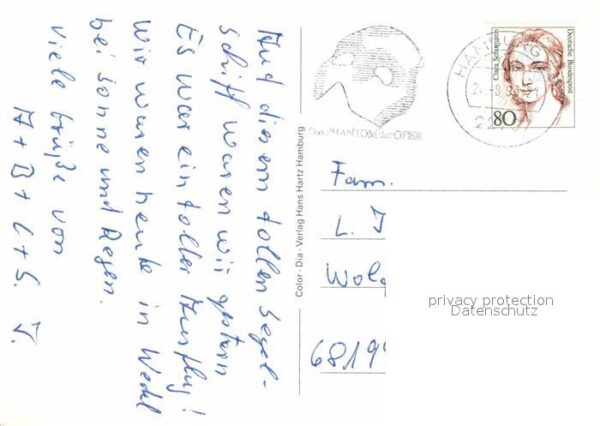 Auf diesem tollen Segel-
schiff waren wir gestern
Es war ein toller Ausflug!
Wir waren heute in Wedel
bei Sonne und Regen.
Viele Grüße von
A + B + C + S. J.
Color - Dia - Verlag Hans Hartz Hamburg
PHANTOM der OPER
HAMBURG
Clara Schumann
Deutsche Bundespost
80
Fam.
L. J
Wolg
6819
privacy protection
Datenschutz